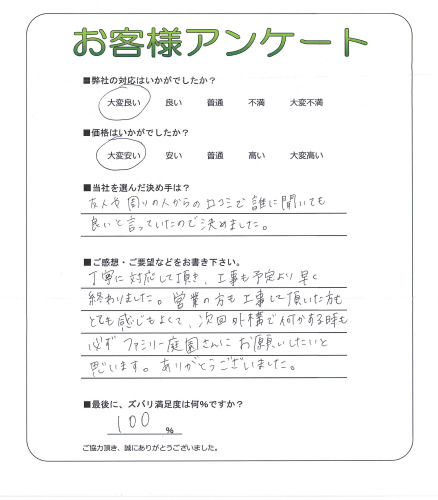 お客様アンケート
■弊社の対応はいかがでしたか？
大変良い 良い 普通 不満 大変不満
■価格はいかがでしたか？
大変安い 安い 普通 高い 大変高い
■当社を選んだ決め手は？
友人や周りの人からの口コミで誰に聞いても
良いと言っていたので決めました。
■ご感想・ご要望などをお書き下さい。
丁寧に対応して頂き、工事も予定より早く
終わりました。営業の方も工事して頂いた方も
とても感じもよくて、次回外構で何かする時も
必ずファミリー庭園さんにお願いしたいと
思います。ありがとうございました。
■最後に、ズバリ満足度は何%ですか？
100 %
ご協力頂き、誠にありがとうございました。